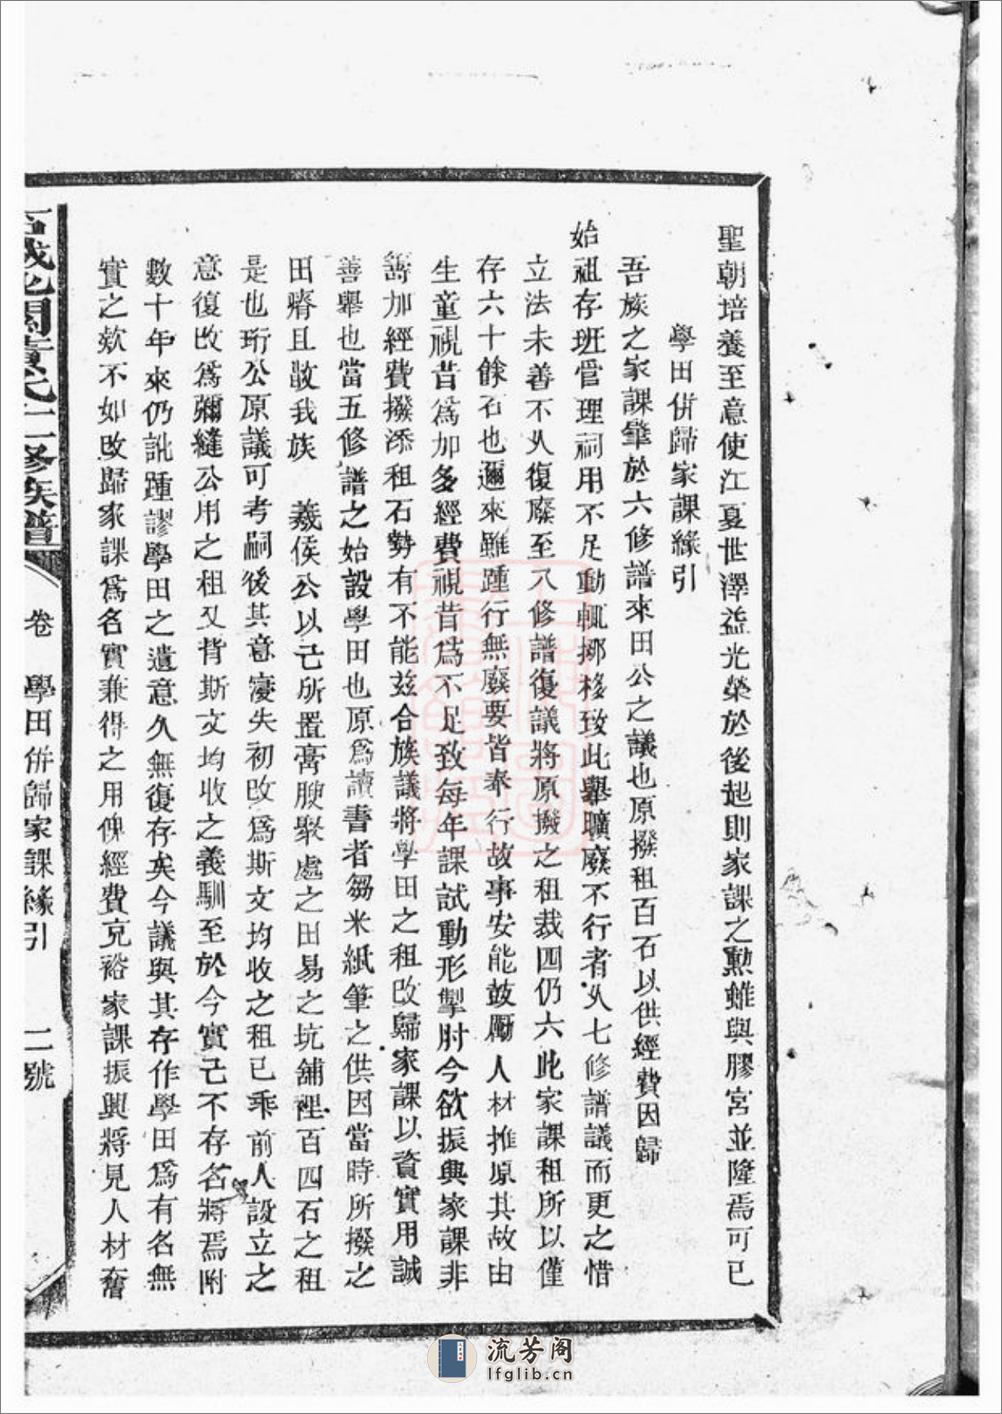 聖朝培養至意使江夏世澤益光榮於後起則家課之勲雖與膠宮並隆焉可已
學田併歸家課緣引
吾族之家課肇於六修譜來田公之議也原撥租百石以供經費因歸
始祖存班管理祠用不足動輒挪移致此舉曠廢不行者久七修譜議而更之惜
立法未善不久復廢至八修譜復議將原撥之租裁四仍六此家課租所以僅
存六十餘石也邇來雖踵行無廢要皆奉行故事安能鼓勵人材推原其故由
生童視昔為加多經費視昔為不足致每年課試動形掣肘今欲振興家課非
籌加經費撥添租石勢有不能兹合族議將學田之租改歸家課以資實用誠
善舉也當五修譜之始設學田也原為讀書者芻米紙筆之供因當時所撥之
田瘠且散我族 羲侯公以己所置膏腴聚處之田易之坑舖裡百四石之租
是也珩公原議可考嗣後其意寖失初改為斯文均收之租已乖前人設立之
意復改為彌縫公用之租又背斯文均收之義馴至於今實已不存名將焉附
數十年來仍訛踵謬學田之遺意久無復存矣今議與其存作學田為有名無
實之欵不如改歸家課為名實兼得之用俾經費充裕家課振興將見人材奮
黃氏十修族譜 卷 學田併歸家課緣引 二號
流芳阁
lfglib.cn